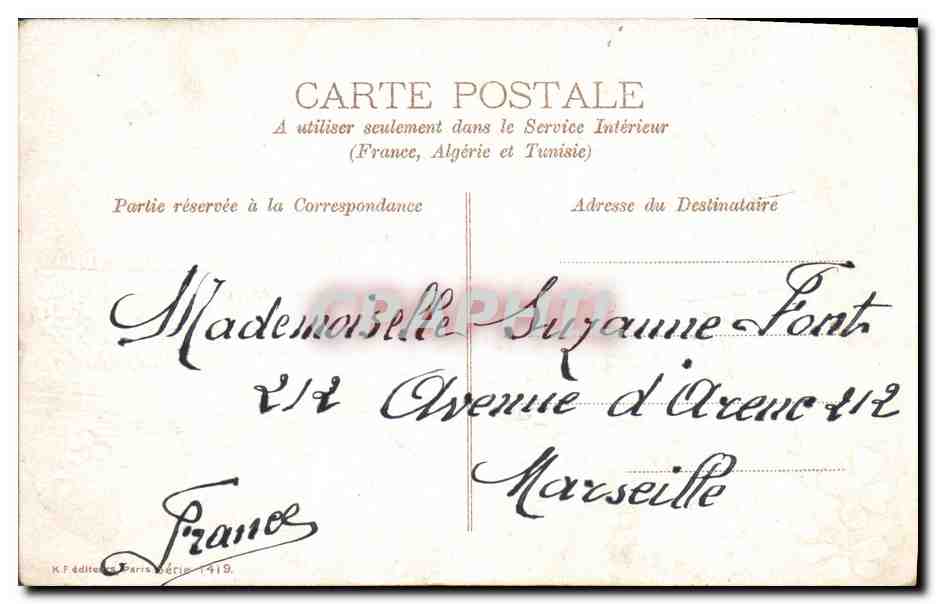 CARTE POSTALE
A utiliser seulement dans le Service Intérieur
(France, Algérie et Tunisie)
Partie réservée à la Correspondance
Adresse du Destinataire
Mademoiselle Suzanne Font
212 Avenue d'Arenc 212
Marseille
France
K.F éditeurs, Paris Série 1419.